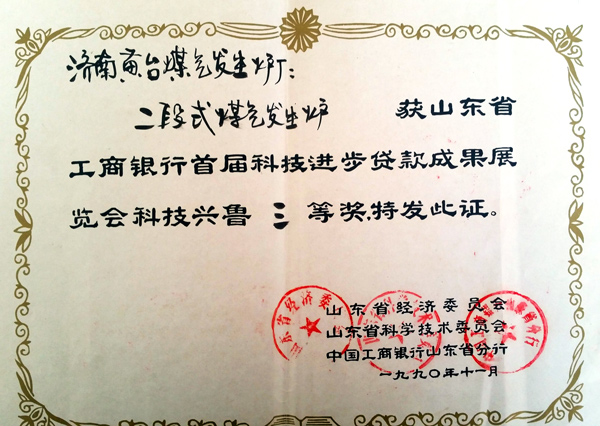 济南黄台煤气发生炉厂：
二段式煤气发生炉 获山东省
工商银行首届科技进步贷款成果展
览会科技兴鲁 三 等奖，特发此证。
山东省经济委员会
山东省科学技术委员会
中国工商银行山东省分行
一九九〇年十一月
山东省经济委